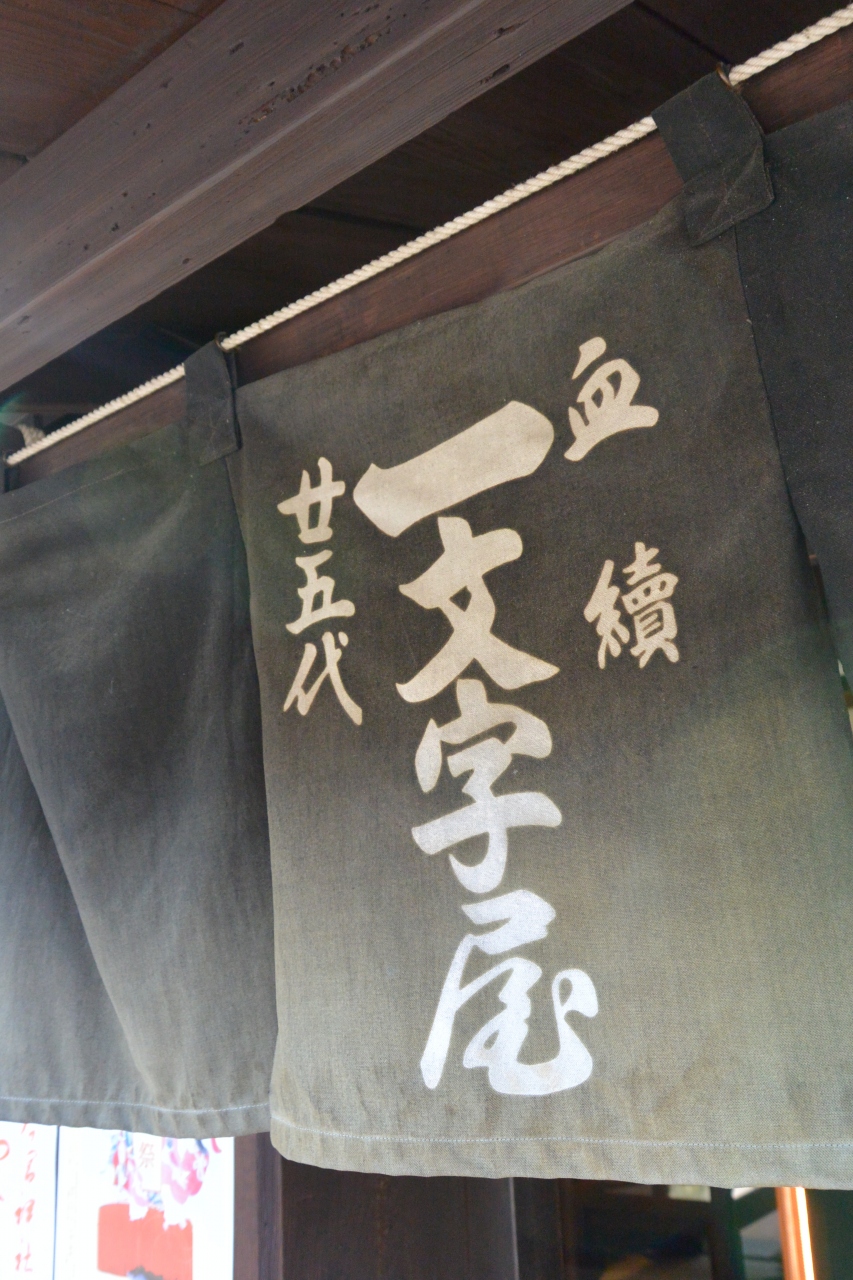 血續
一文字屋
廿五代
祭